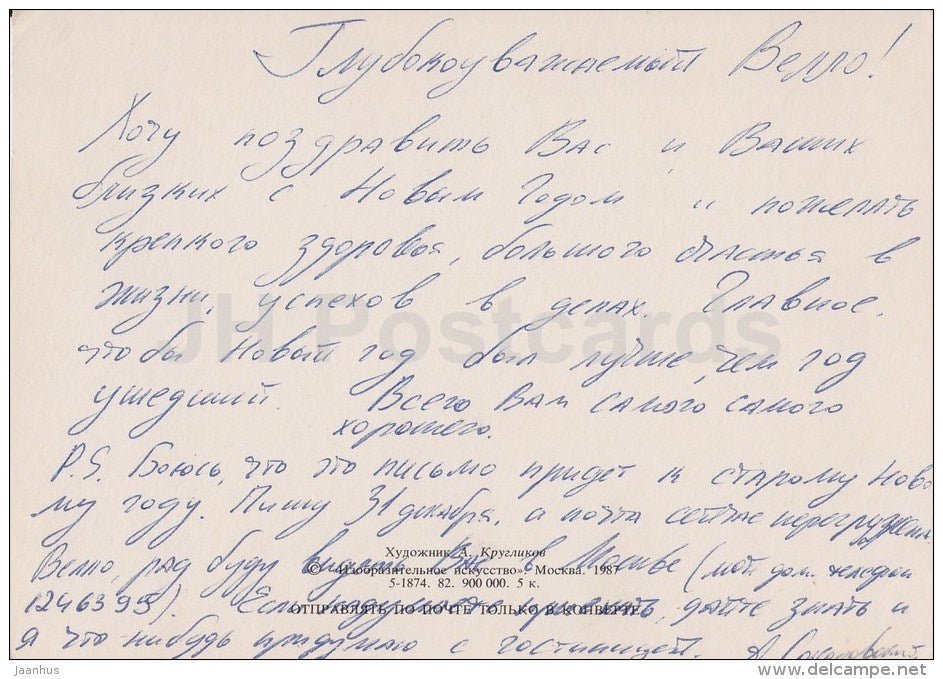 Глубокоуважаемый Велло!
Хочу поздравить Вас и Ваших
близких с Новым Годом и пожелать
крепкого здоровья, большого счастья в
жизни, успехов в делах. Главное,
чтобы Новый год был лучше, чем год
ушедший Всего Вам самого самого
хорошего.
P.S. Боюсь, что это письмо придет к старому Ново
му году. Пишу 31 декабря, а почта сейчас
Велло, рад буду видеть Вас в Москве (мой дом. телефон
Художник А. Кругликов
© «Изобразительное искусство». Москва. 1987
5-1874. 82. 900 000. 5 к.
1246395). Если приехать, дайте знать и
ОТПРАВЛЯТЬ ПО ПОЧТЕ ТОЛЬКО В КОНВЕРТЕ
я что нибудь придумаю с гостиницей.
JH Postcards
jaanhus
www.delcampe.net